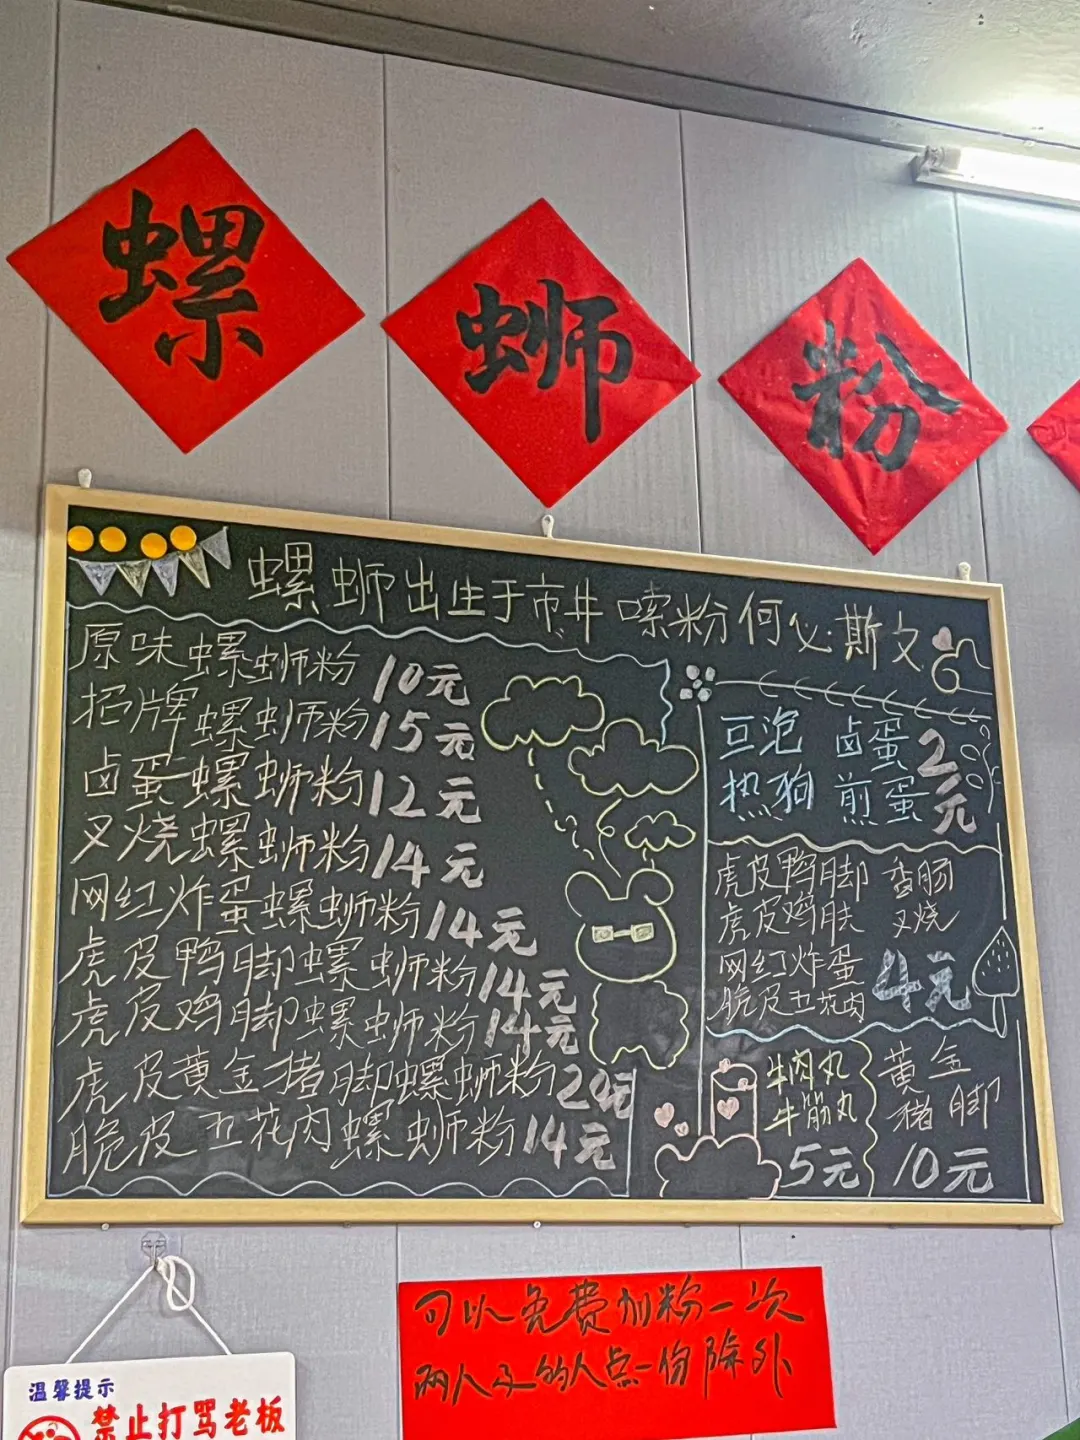 螺蛳粉
螺蛳出生于市井 嗦粉何必斯文
原味螺蛳粉10元
招牌螺蛳粉15元
卤蛋螺蛳粉12元
叉烧螺蛳粉14元
网红炸蛋螺蛳粉14元
虎皮鸭脚螺蛳粉14元
虎皮鸡脚螺蛳粉14元
虎皮黄金猪脚螺蛳粉20元
脆皮五花肉螺蛳粉14元
豆泡 卤蛋 2元
热狗 煎蛋
虎皮鸭脚 香肠
虎皮鸡脚 叉烧
网红炸蛋 4元
脆皮五花肉
牛肉丸
牛筋丸
5元
黄金
猪脚
10元
可以免费加粉一次
两人及的人点一份除外
温馨提示
禁止打骂老板